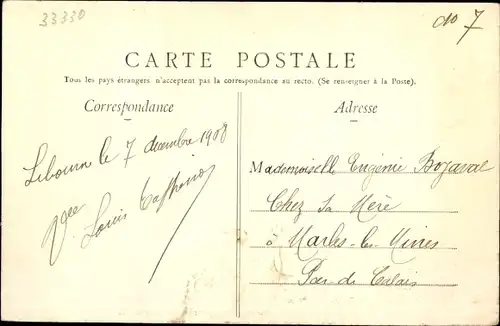 33330
do 7
CARTE POSTALE
Tous les pays étrangers n'acceptent pas la correspondance au recto. (Se renseigner à la Poste).
Correspondance
Adresse
Libourne le 7 décembre 1908
Vve Louis
Mademoiselle Eugénie
Chez Sa Mère
à Marles-les-Mines
Pas-de Calais